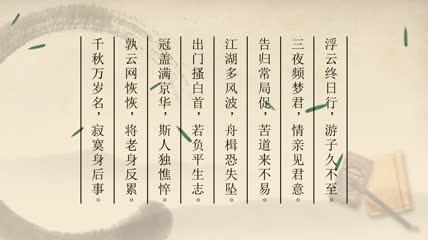 浮云终日行，游子久不至。
三夜频梦君，情亲见君意。
告归常局促，苦道来不易。
江湖多风波，舟楫恐失坠。
出门搔白首，若负平生志。
冠盖满京华，斯人独憔悴。
孰云网恢恢，将老身反累。
千秋万岁名，寂寞身后事。